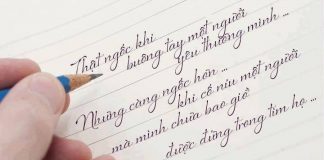 Thật ngốc khi
buông tay một người
yêu thương mình ...
Những càng ngốc hơn ...
khi cố níu một người
mà mình chưa bao giờ
được đứng trong tim họ ...